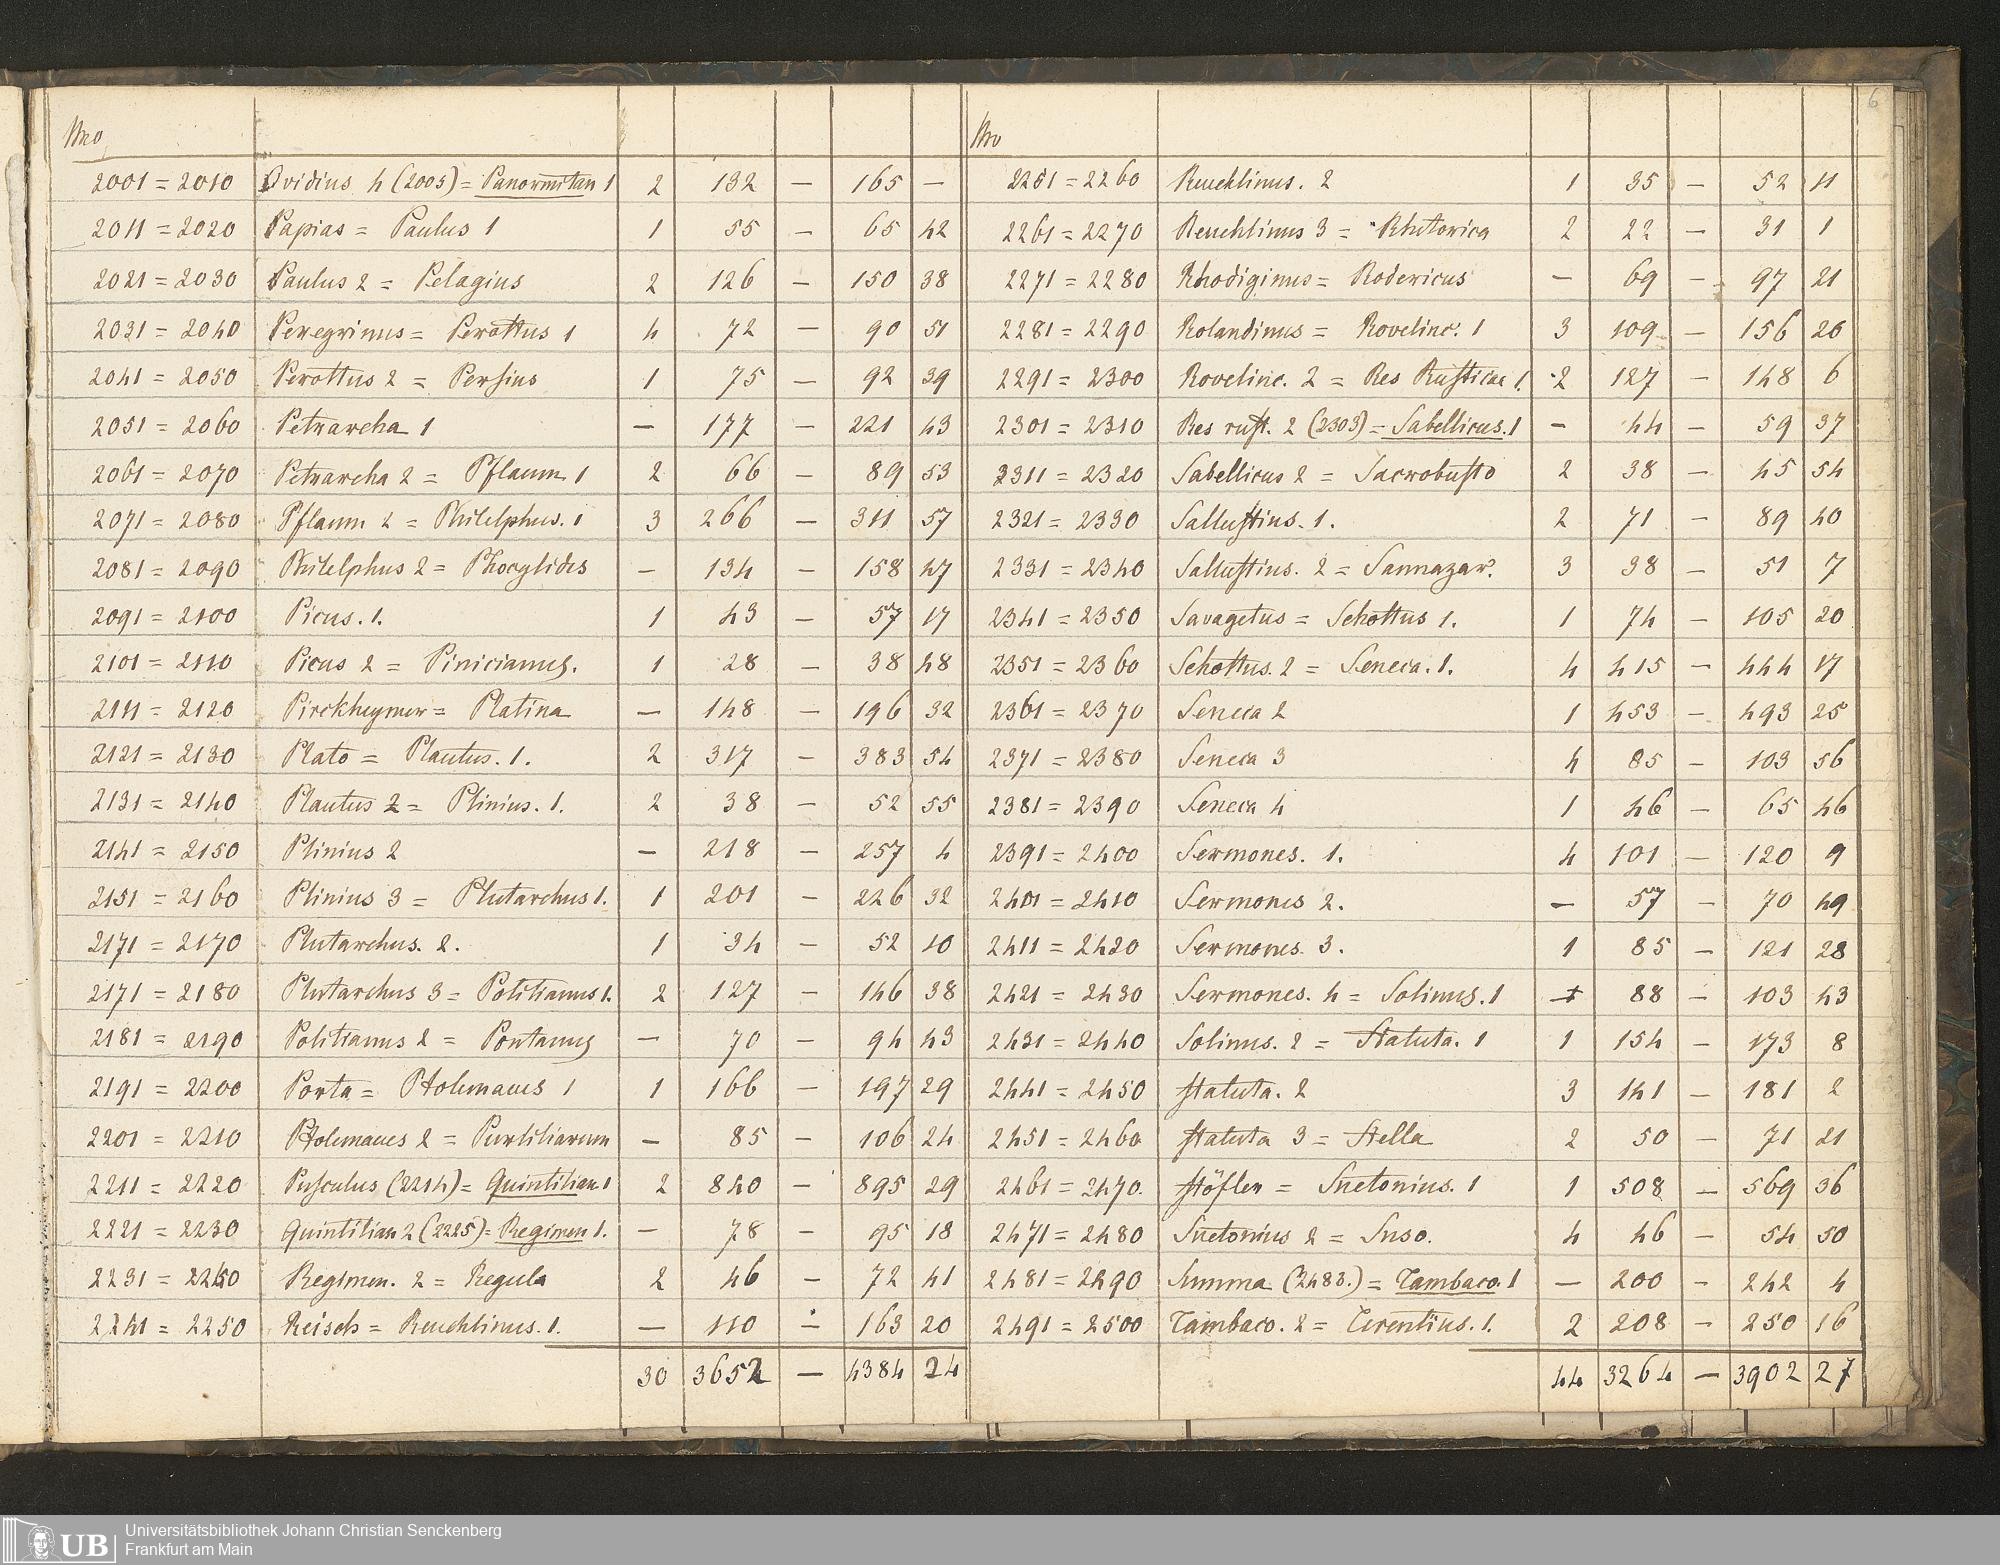 6
Nro
2001 = 2010 Ovidius 4 (2005) = Panormitan 1 2 132 — 165 —
2011 = 2020 Papias = Paulus 1 1 55 — 65 42
2021 = 2030 Paulus 2 = Pelagius 2 126 — 150 38
2031 = 2040 Peregrinus = Perottus 1 4 72 — 90 51
2041 = 2050 Perottus 2 = Persius 1 75 — 92 39
2051 = 2060 Petrarcha 1 — 177 — 221 43
2061 = 2070 Petrarcha 2 = Pflaum 1 2 66 — 89 53
2071 = 2080 Pflaum 2 = Philelphus. 1 3 266 — 311 57
2081 = 2090 Philelphus 2 = Phocylides — 134 — 158 47
2091 = 2100 Picus. 1. 1 43 — 57 17
2101 = 2110 Picus 2 = Pinicianus. 1 28 — 38 48
2111 = 2120 Pirckheymer = Platina — 148 — 196 32
2121 = 2130 Plato = Plautus. 1. 2 317 — 383 54
2131 = 2140 Plautus 2 = Plinius. 1. 2 38 — 52 55
2141 = 2150 Plinius 2 — 218 — 257 4
2151 = 2160 Plinius 3 = Plutarchus 1. 1 201 — 226 32
2171 = 2170 Plutarchus. 2. 1 34 — 52 10
2171 = 2180 Plutarchus 3 = Politianus 1. 2 127 — 146 38
2181 = 2190 Politianus 2 = Pontanus — 70 — 94 43
2191 = 2200 Porta = Ptolemaeus 1 1 166 — 197 29
2201 = 2210 Ptolemaeus 2 = Purliliarum — 85 — 106 24
2211 = 2220 Pusculus (2214) = Quintilian 1 2 840 — 895 29
2221 = 2230 Quintilian 2 (2225) = Regimen 1. — 78 — 95 18
2231 = 2240 Regimen. 2 = Regula 2 46 — 72 41
2241 = 2250 Reisch = Reuchlinus. 1. — 110 — 163 20
30 3652 — 4384 24
Nro
2251 = 2260 Reuchlinus. 2 1 35 — 52 11
2261 = 2270 Reuchlinus 3 = Rhetorica 2 22 — 31 1
2271 = 2280 Rhodiginus = Rodericus — 69 — 97 21
2281 = 2290 Rolandinus = Rovelinc. 1 3 109 — 156 26
2291 = 2300 Rovelinc. 2 = Res Rusticae 1. 2 127 — 148 6
2301 = 2310 Res rust. 2 (2303) = Sabellicus. 1 — 44 — 59 37
2311 = 2320 Sabellicus 2 = Sacrobusto 2 38 — 45 54
2321 = 2330 Sallustius. 1. 2 71 — 89 40
2331 = 2340 Sallustius. 2 = Sannazar. 3 38 — 51 7
2341 = 2350 Savagetus = Schottus 1. 1 74 — 105 20
2351 = 2360 Schottus. 2 = Seneca. 1. 4 415 — 444 17
2361 = 2370 Seneca 2 1 453 — 493 25
2371 = 2380 Seneca 3 4 85 — 103 56
2381 = 2390 Seneca 4 1 46 — 65 46
2391 = 2400 Sermones. 1. 4 101 — 120 9
2401 = 2410 Sermones 2. — 57 — 70 49
2411 = 2420 Sermones. 3. 1 85 — 121 28
2421 = 2430 Sermones. 4 = Solinus. 1 88 — 103 43
2431 = 2440 Solinus. 2 = Statuta. 1 1 154 — 173 8
2441 = 2450 Statuta. 2 3 141 — 181 2
2451 = 2460 Statuta 3 = Stella 2 50 — 71 21
2461 = 2470. Stöfler = Suetonius. 1 1 508 — 569 36
2471 = 2480 Suetonius 2 = Suso. 4 46 — 54 50
2481 = 2490 Summa (2483.) = Tambaco. 1 — 200 — 242 4
2491 = 2500 Tambaco. 2 = Terentius. 1. 2 208 — 250 16
44 3264 — 3902 27
UB
Universitätsbibliothek Johann Christian Senckenberg
Frankfurt am Main